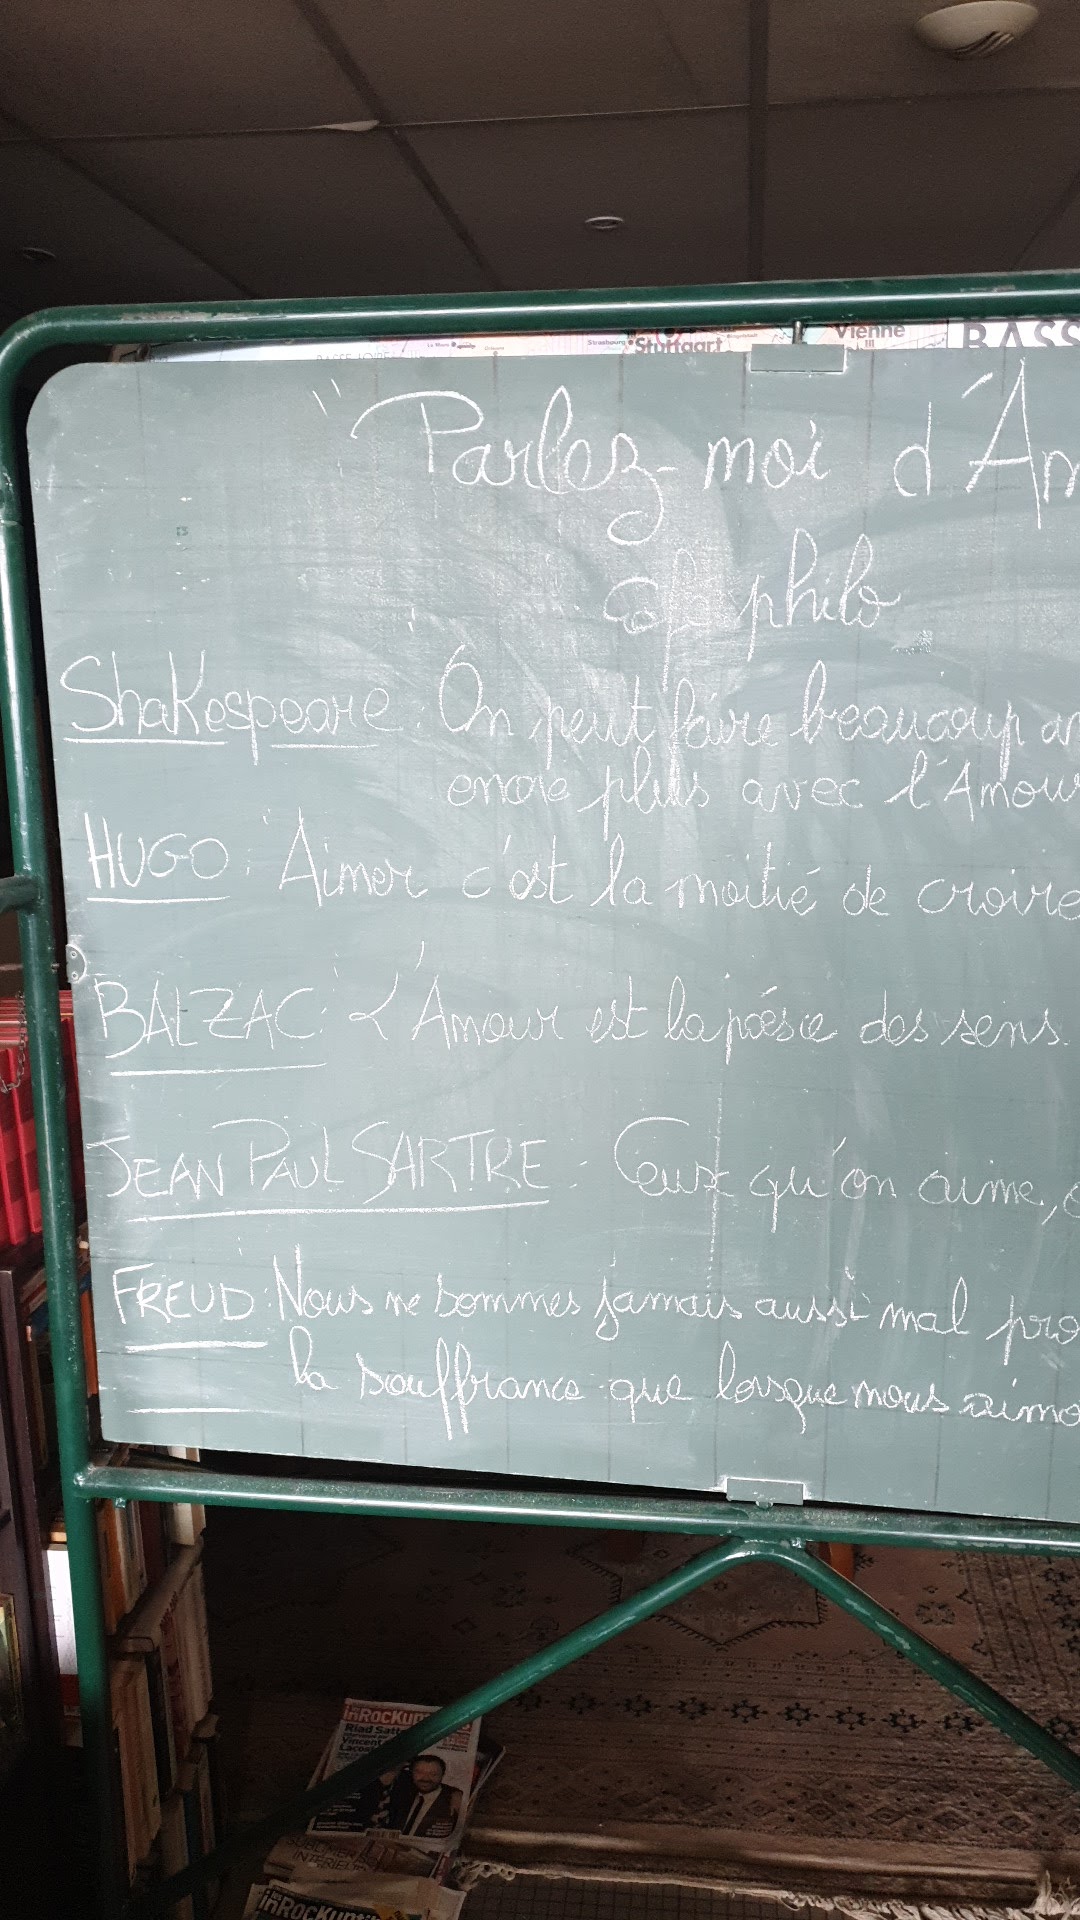 Strasbourg Stuttgart Vienne BASS
"Parlez-moi d'Am
Café philo
Shakespeare: On peut faire beaucoup
encore plus avec l'Amour
HUGO: Aimer c'est la moitié de croire
BALZAC: L'Amour est la poésie des sens.
JEAN PAUL SARTRE: Ceux qu'on aime,
FREUD: Nous ne sommes jamais aussi mal pro
la souffrance que lorsque nous aimo
inRocKup
Riad Satt
Vincent
Lacos
inRocKupti